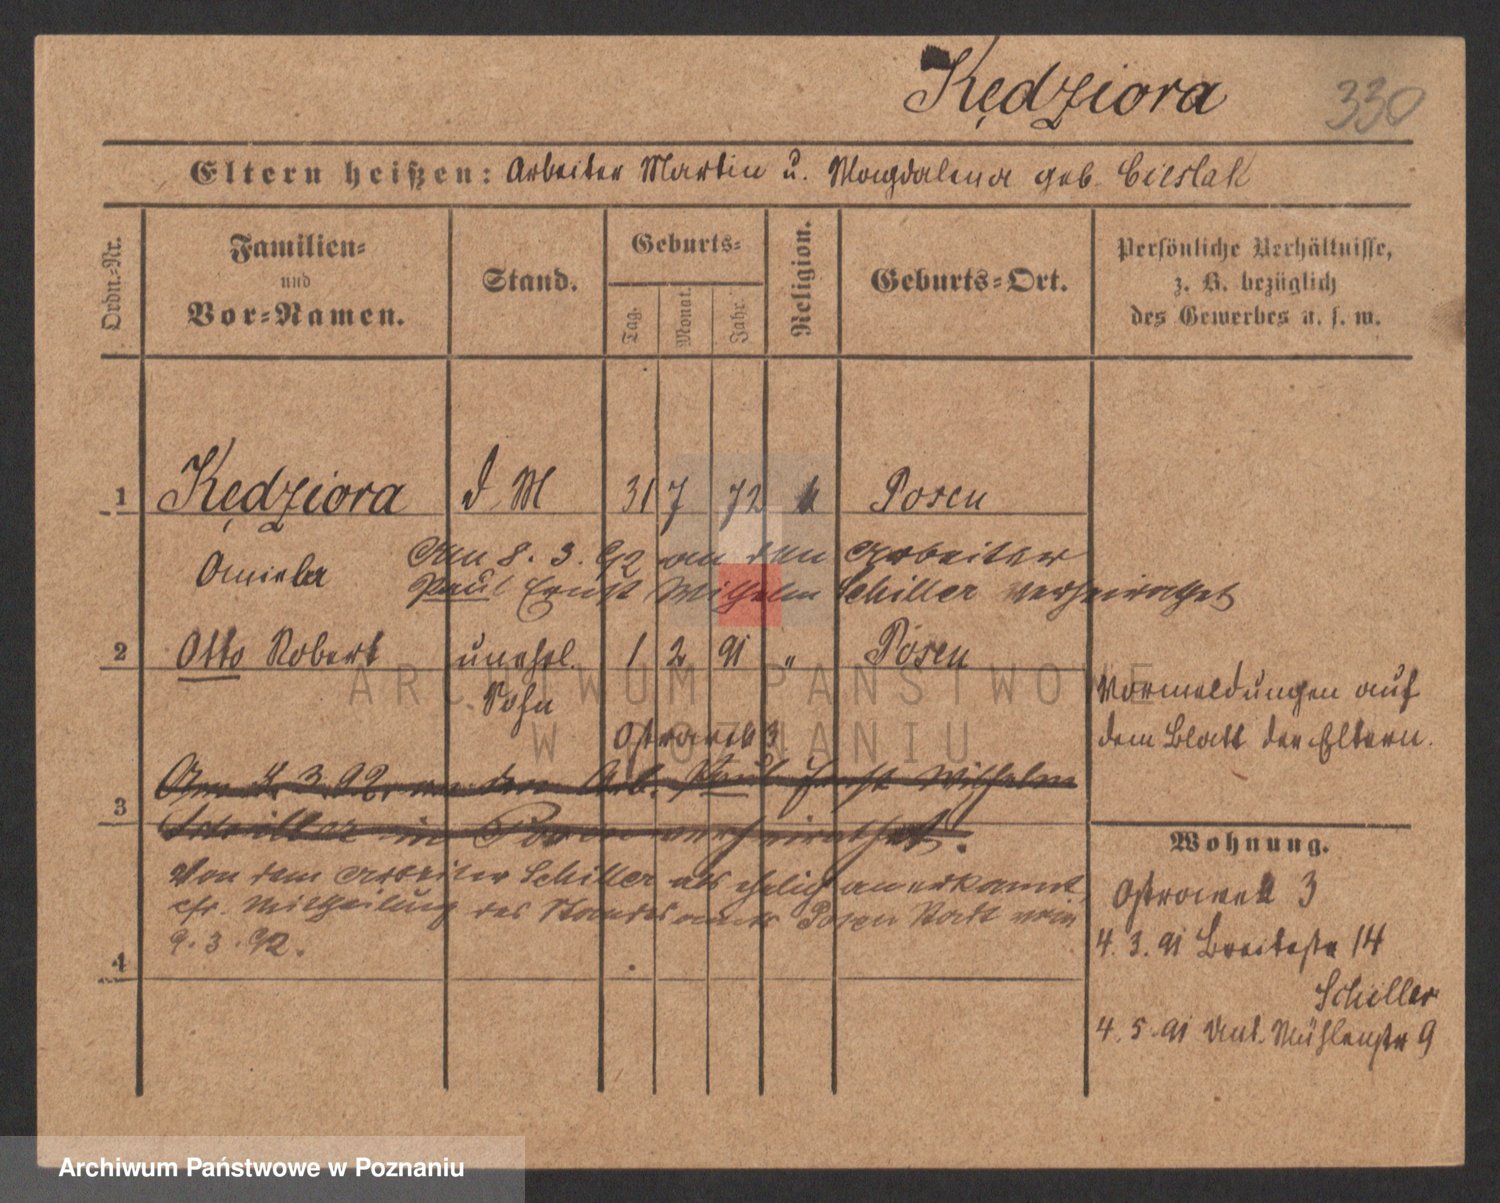 Kędziora
330
Eltern heißen: Arbeiter Martin u. Magdalena geb. Cieslak
Ordn.-Nr.
Familien-
und
Vor-Namen.
Stand.
Geburts-
Tag.
Monat.
Jahr.
Religion.
Geburts-Ort.
Persönliche Verhältnisse,
z. B. bezüglich
des Gewerbes u. s. w.
1 Kędziora d M 31 7 72 k Posen
Aniela
Am 8. 3. 92 an den Arbeiter
Paul Ernst Wilhelm Schiller verheirathet
2 Otto Robert unehel. 1 2 91 " Posen
Sohn
Ostrowek 3
Vormeldungen auf
dem Blatt der Eltern.
3
Am 8. 3. 92. an den Arb. Paul Ernst Wilhelm
Schiller in Posen verheirathet.
Von dem Arbeiter Schiller als ehelich anerkannt,
cfr. Mittheilung des Standesamts Posen Stadt vom
9. 3. 92.
4
Wohnung.
Ostrowek 3
4. 3. 91 Breitestr 14
Schiller
4. 5. 91 Unt. Mühlenstr 9
ARCHIWUM PAŃSTWOWE
W POZNANIU
Archiwum Państwowe w Poznaniu